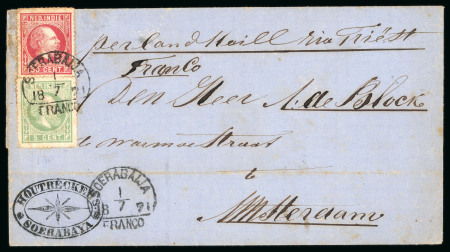 NED. INDIE
CENT
SOERABAIJA
18 7 71
FRANCO
5 CENT
per Land Maill via Triëst
Franco
Den Heer A. de Block
Warmoesstraat
te
Amsterdam
HOUTRECKER
SOERABAYA
SOERABAIJA
1
8 7 71
FRANCO